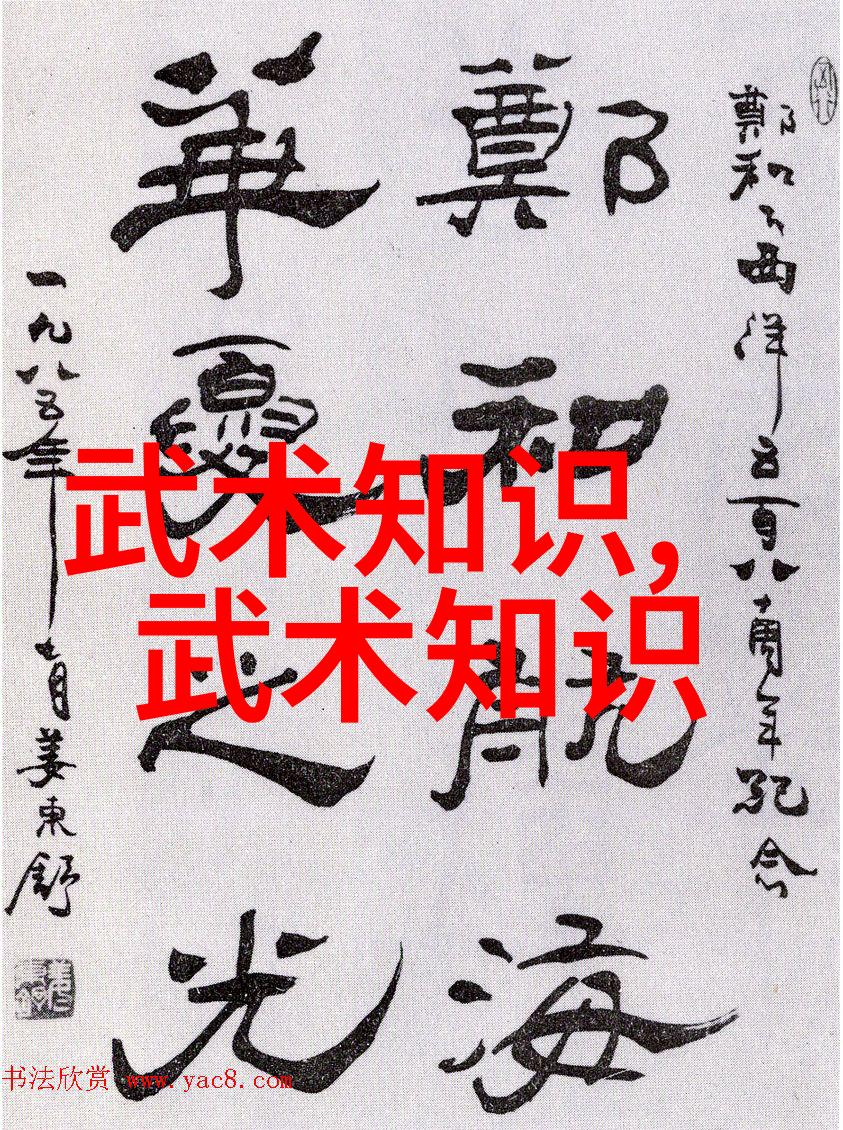 鄭和下西洋五百八十周年紀念
鄭和航海
華夏之光
一九八五年 月姜東舒
武术知识,
武术知识
书法欣赏 www.yac8.com